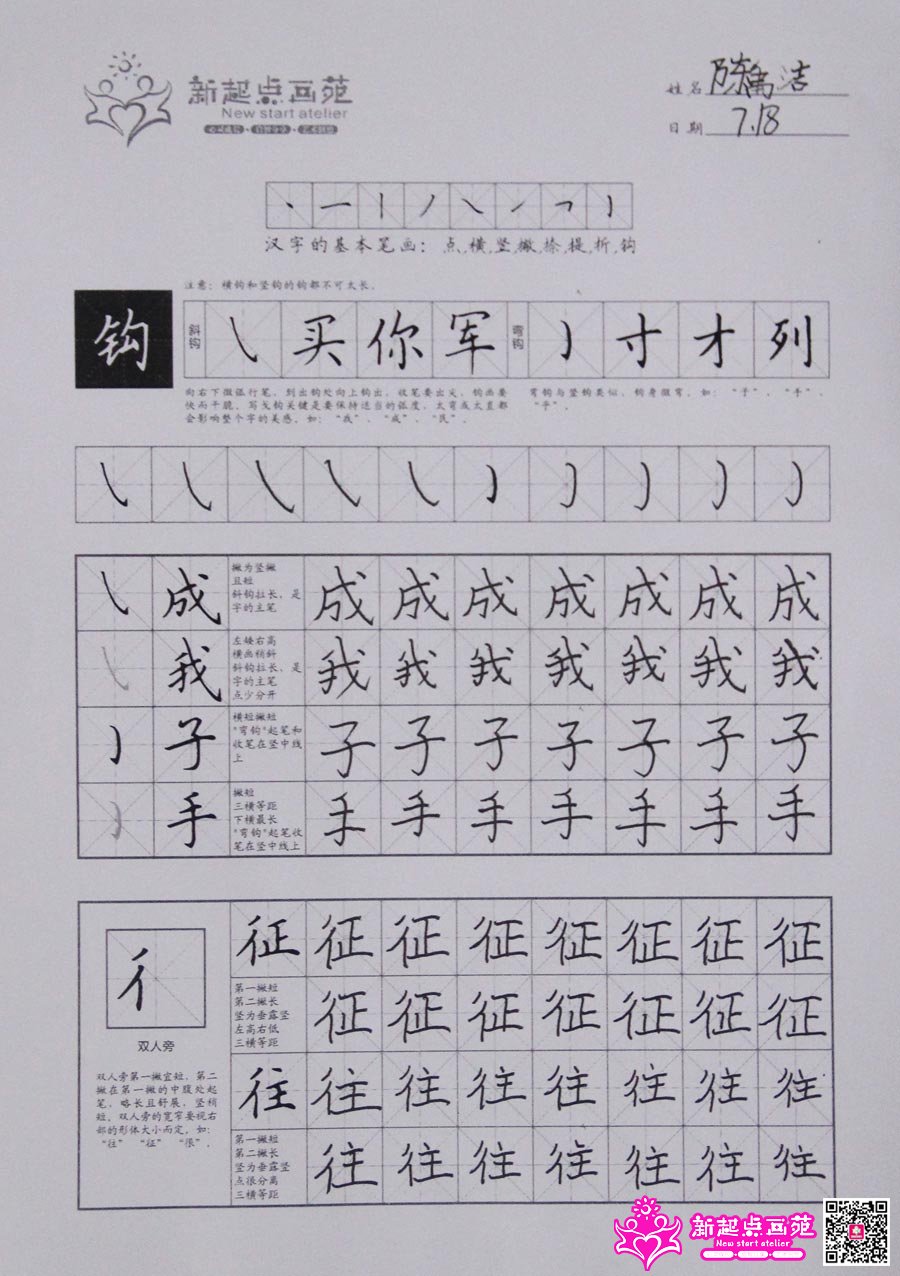 新起点画苑
New start atelier
姓名 陈 洁
日期 7.18
汉字的基本笔画：点,横,竖,撇,捺,提,折,钩
注意：横钩和竖钩的钩都不可太长。
钩 斜钩 买 你 军 弯钩 寸 才 列
向右下微弧行笔，到出钩处向上钩出，收笔要出尖，钩画要
快而干脆，写戈钩关键是要保持适当的弧度，太弯或太直都
会影响整个字的美感，如：“戎”、“成”、“民”。
弯钩与竖钩类似，钩身微弯，如：“子”、“手”、
“乎”。
成 撇为竖撇 成 成 成 成 成 成 成
且短
斜钩拉长，是
字的主笔
我 左矮右高 我 我 我 我 我 我 我
横画稍斜
斜钩拉长，是
字的主笔
点少分开
子 横短撇短 子 子 子 子 子 子 子
"弯钩"起笔和
收笔在竖中线
上
手 撇短 手 手 手 手 手 手 手
三横等距
下横最长
"弯钩"起笔收
笔在竖中线上
彳
双人旁
双人旁第一撇宜短，第二
撇在第一撇的中腹处起
笔，略长且舒展，竖稍
短。双人旁的宽窄要视右
部的形体大小而定，如：
“往” “征” “很”。
征 征 征 征 征 征 征 征
第一撇短 征 征 征 征 征 征 征
第二撇长
竖为垂露竖
左高右低
三横等距
往 往 往 往 往 往 往 往
第一撇短 往 往 往 往 往 往 往
第二撇长
竖为垂露竖
点很分离
三横等距
新起点画苑
New start atelier